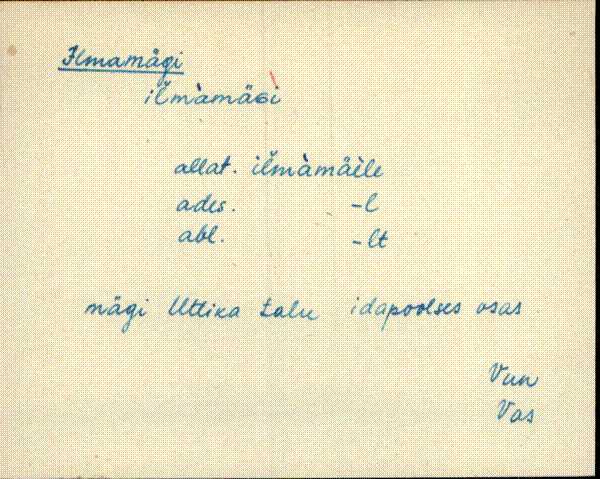 Ilmamägi
ilmàmäɢi
allat. ilmàmäèle
ades. -l
abl. -lt
mägi Uttika talu idapoolses osas
Vun
Vas